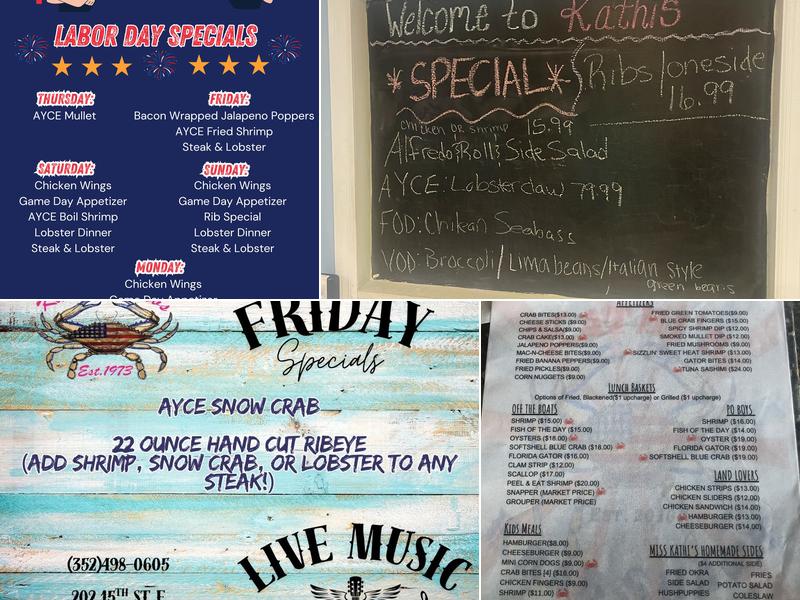 LABOR DAY SPECIALS
THURSDAY:
AYCE Mullet
FRIDAY:
Bacon Wrapped Jalapeno Poppers
AYCE Fried Shrimp
Steak & Lobster
SATURDAY:
Chicken Wings
Game Day Appetizer
AYCE Boil Shrimp
Lobster Dinner
Steak & Lobster
SUNDAY:
Chicken Wings
Game Day Appetizer
Rib Special
Lobster Dinner
Steak & Lobster
MONDAY:
Chicken Wings
Game Day Appetizer
Welcome to Kathi's
*SPECIAL*
Ribs/oneside
16.99
chicken or shrimp 15.99
Alfredo & Roll & Side Salad
AYCE: Lobsterclaw 79.99
FOD: Chilean Seabass
VOD: Broccoli/Lima beans/Italian style
green beans
Est.1973
FRIDAY
Specials
AYCE SNOW CRAB
22 OUNCE HAND CUT RIBEYE
(ADD SHRIMP, SNOW CRAB, OR LOBSTER TO ANY
STEAK!)
(352)498-0605
202 15TH ST. E
LIVE MUSIC
APPETIZERS
CRAB BITES($13.00)
CHEESE STICKS ($9.00)
CHIPS & SALSA($9.00)
CRAB CAKE($13.00)
JALAPENO POPPERS($9.00)
MAC-N-CHEESE BITES($9.00)
FRIED BANANA PEPPERS($9.00)
FRIED PICKLES($9.00)
CORN NUGGETS ($9.00)
FRIED GREEN TOMATOES($9.00)
BLUE CRAB FINGERS ($15.00)
SPICY SHRIMP DIP ($12.00)
SMOKED MULLET DIP ($12.00)
FRIED MUSHROOMS ($9.00)
SIZZLIN' SWEET HEAT SHRIMP ($13.00)
GATOR BITES ($14.00)
TUNA SASHIMI ($24.00)
LUNCH BASKETS
Options of Fried, Blackened($1 upcharge) or Grilled ($1 upcharge)
OFF THE BOATS
SHRIMP ($15.00)
FISH OF THE DAY ($15.00)
OYSTERS ($18.00)
SOFTSHELL BLUE CRAB ($18.00)
FLORIDA GATOR ($16.00)
CLAM STRIP ($12.00)
SCALLOP ($17.00)
PEEL & EAT SHRIMP ($20.00)
SNAPPER (MARKET PRICE)
GROUPER (MARKET PRICE)
PO BOYS
SHRIMP ($16.00)
FISH OF THE DAY ($14.00)
OYSTER ($19.00)
FLORIDA GATOR ($19.00)
SOFTSHELL BLUE CRAB ($19.00)
LAND LOVERS
CHICKEN STRIPS ($13.00)
CHICKEN SLIDERS ($12.00)
CHICKEN SANDWICH ($14.00)
HAMBURGER ($13.00)
CHEESEBURGER ($14.00)
KIDS MEALS
HAMBURGER($8.00)
CHEESEBURGER ($9.00)
MINI CORN DOGS ($9.00)
CRAB BITES [4] ($16.00)
CHICKEN FINGERS ($9.00)
SHRIMP ($11.00)
MISS KATHI'S HOMEMADE SIDES
($4 ADDITIONAL SIDE)
FRIED OKRA
SIDE SALAD
HUSHPUPPIES
FRIES
POTATO SALAD
COLESLAW